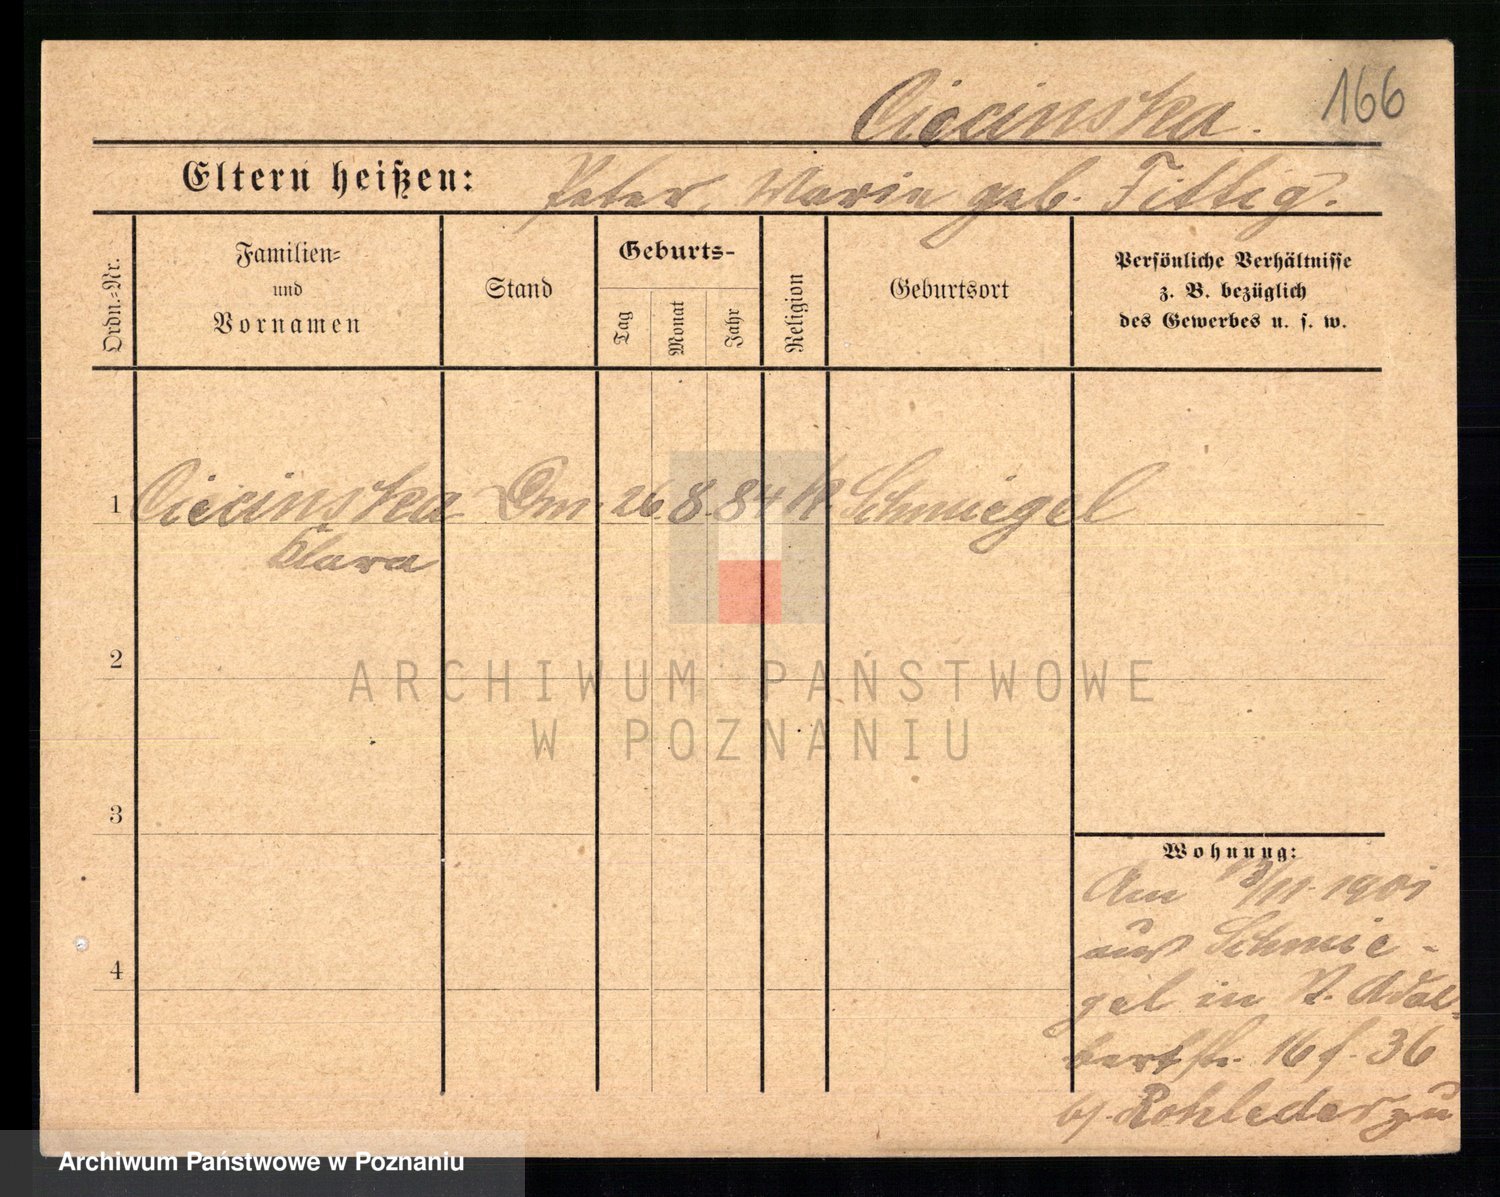 166
Ciecinska.
Eltern heißen: Peter, Marie geb. Tittig.
Ordn.=Nr.
Familien=
und
Vornamen
Stand
Geburts-
Tag
Monat
Jahr
Religion
Geburtsort
Persönliche Verhältnisse
z. B. bezüglich
des Gewerbes u. s. w.
1 Ciecinska 26. 8. 84 k. Schmiegel
Klara
2
ARCHIWUM PAŃSTWOWE
W POZNANIU
3
Wohnung:
Am 13/11. 1901
aus Schmie-
gel in St. Adal-
bertstr. 16 36
b/. Rohleder zu
4
Archiwum Państwowe w Poznaniu